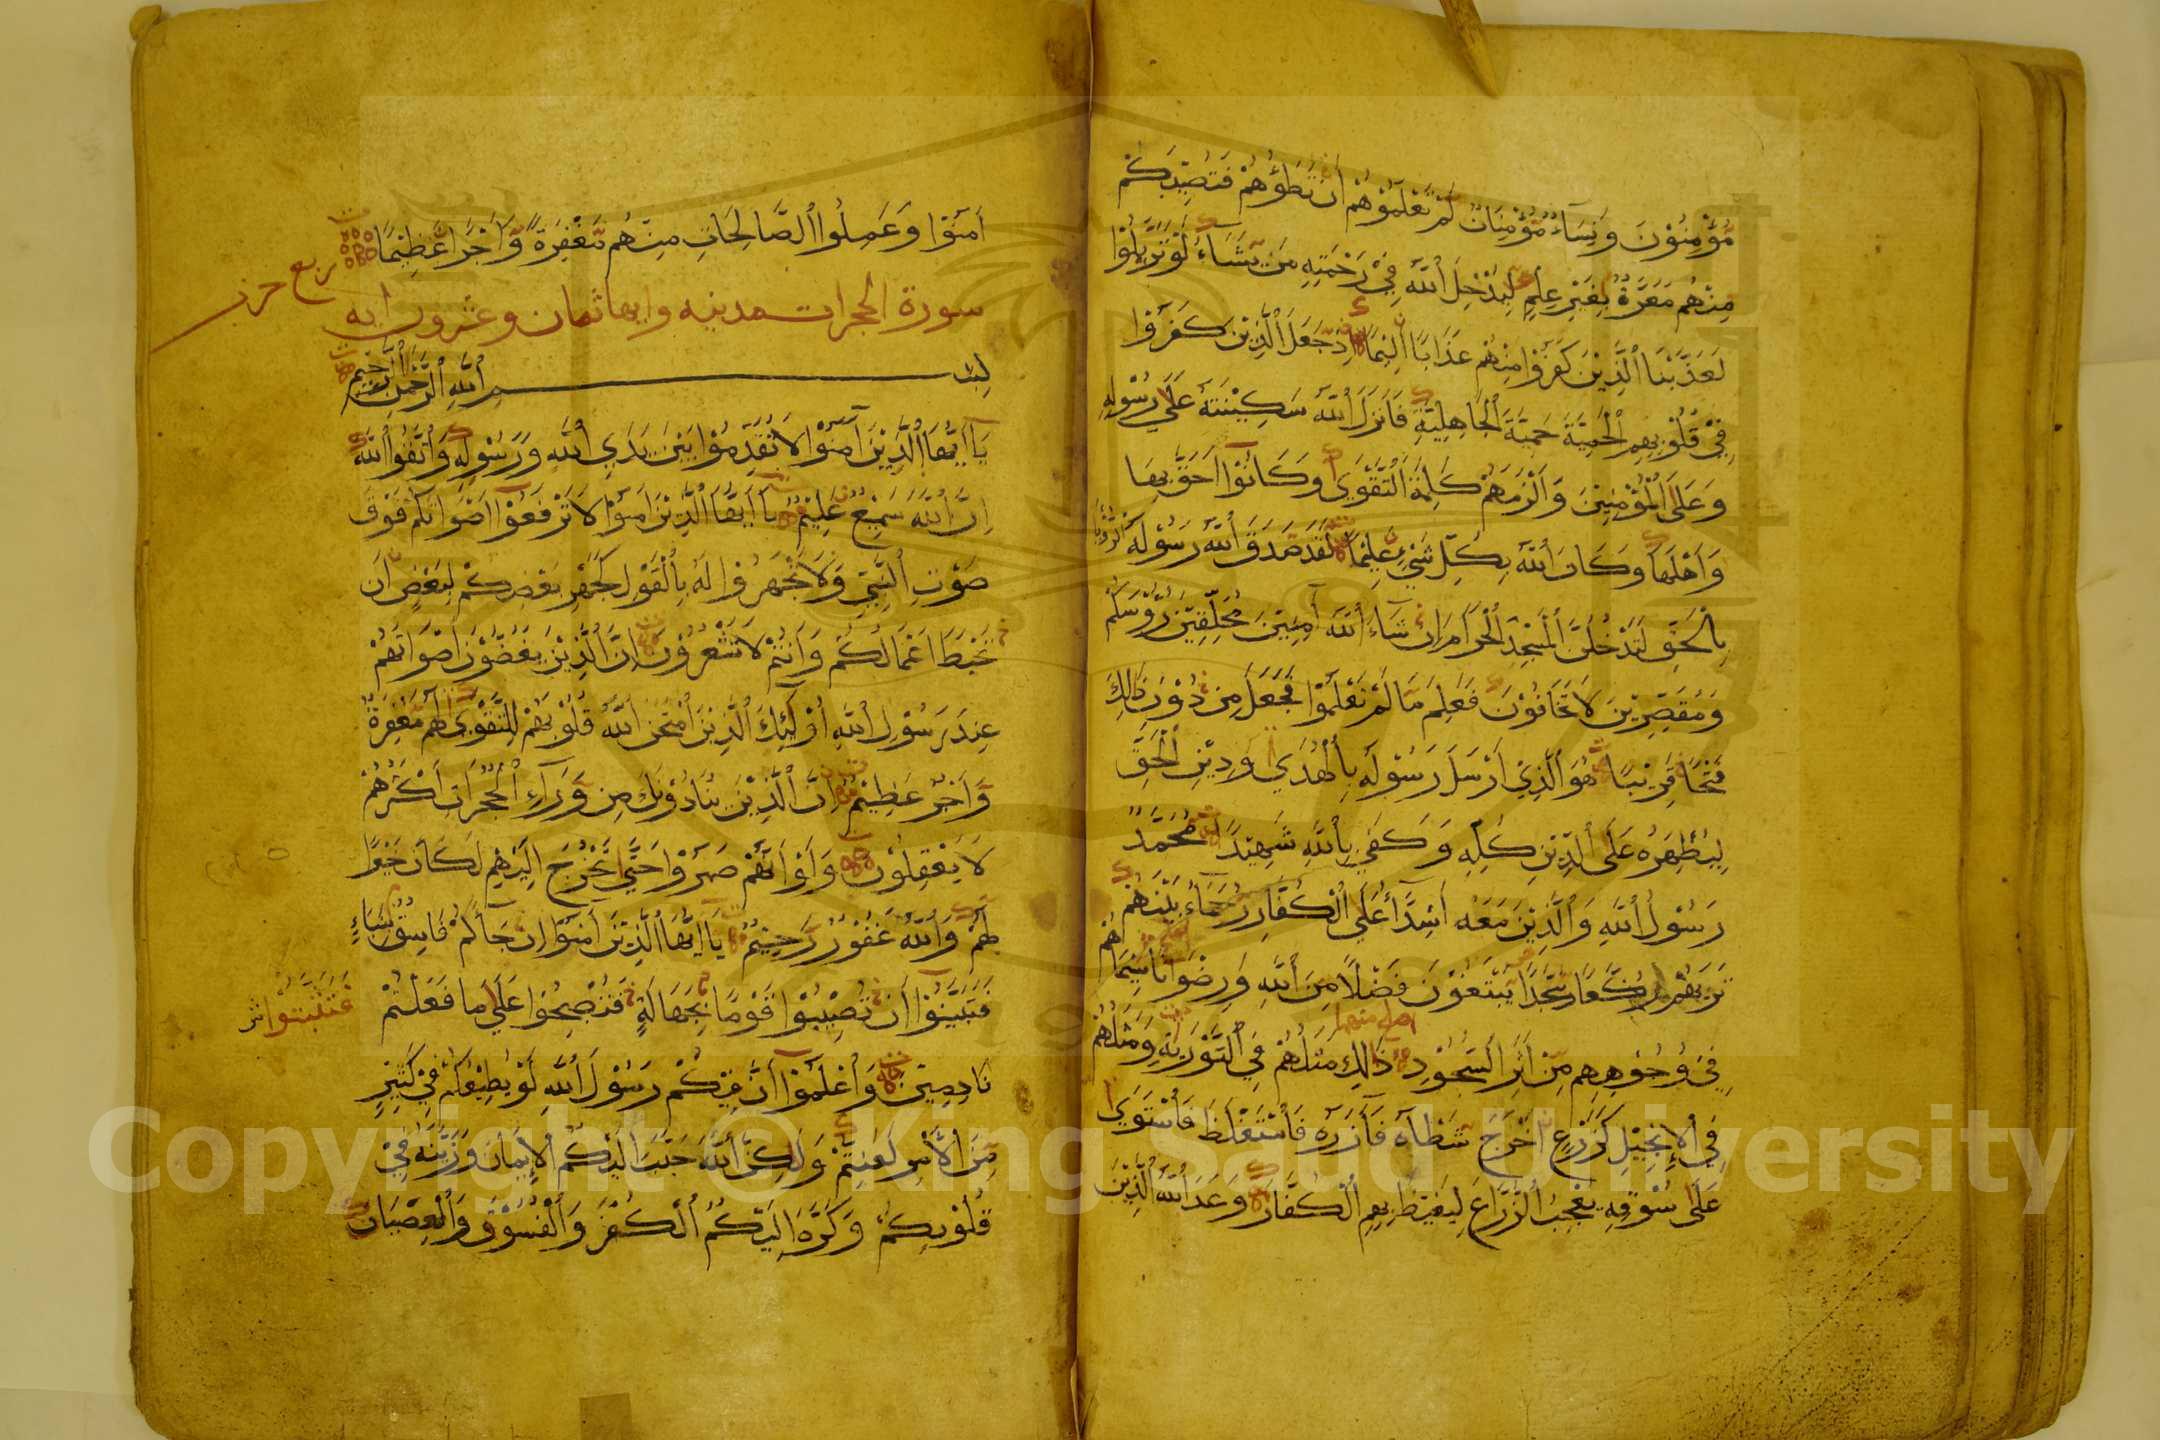 مُّؤْمِنُوْنَ وَنِسَآءٌ مُّؤْمِنَاتٌ لَّمْ تَعْلَمُوْهُمْ اَنْ تَطَؤُهُمْ فَتُصِيْبَكُمْ
مِنْهُم مَعَرَّةٌ بِغَيْرِ عِلْمٍ لِيُدْخِلَ اُللّٰهُ فِيْ رَحْمَتِهِ مَنْ يَّشَآءُ لَوْ تَزَيَّلُوْا
لَعَذَّبْنَا اَلَّذِيْنَ كَفَرُوْا مِنْهُمْ عَذَابًا اَلِيْمًا اِذْ جَعَلَ اَلَّذِيْنَ كَفَرُوْا
فِيْ قُلُوْبِهِمِ اُلْحَمِيَّةَ حَمِيَّةَ اَلْجَاهِلِيَّةِ فَاَنْزَلَ اُللّٰهُ سَكِيْنَتَهُ عَلٰي رَسُوْلِهِ
وَعَلَى اَلْمُؤْمِنِيْنَ وَاَلْزَمَهُمْ كَلِمَةَ اَلتَّقْوٰى وَكَانُوْٓا اَحَقَّ بِهَا
وَاَهْلَهَا وَكَانَ اَللّٰهُ بِكُلِّ شَيْءٍ عَلِيْمًا لَقَدْ صَدَقَ اَللّٰهُ رَسُوْلَهُ اُلرُّؤْيَا
بِالْحَقِّ لَتَدْخُلُنَّ اَلْمَسْجِدَ اَلْحَرَامَ اِنْ شَآءَ اَللّٰهُ آمِنِيْنَ مُحَلِّقِيْنَ رُؤُسَكُمْ
وَمُقَصِّرِيْنَ لَا تَخَافُوْنَ فَعَلِمَ مَا لَمْ تَعْلَمُوْا فَجَعَلَ مِنْ دُوْنِ ذَالِكَ
فَتْحًا قَرِيْبًا هُوَ اَلَّذِيْٓ اَرْسَلَ رَسُوْلَهُ بِاُلْهُدٰي وَدِيْنِ اُلْحَقِّ
لِيُظْهِرَهُ عَلَى اُلدِّيْنِ كُلِّهِ وَكَفٰي بِاُللّٰهِ شَهِيْدًا مُحَمَّدٌ
رَسُوْلُ اُللّٰهِ وَالَّذِيْنَ مَعَهُ اَشِدَّآءُ عَلَى اَلْكُفَّارِ رُحَمَآءُ بَيْنَهُمْ
تَرٰيهُمْ رُكَّعًا سُجَّدًا يَبْتَغُوْنَ فَضْلًا مِنَ اَللّٰهِ وَرِضْوَانًا سِيْمَاهُمْ
فِيْ وُجُوْهِهِم مِّنْ اَثَرِ اَلسُّجُوْدِ ذَالِكَ مَثَلُهُمْ فِي اُلتَّوْرٰيةِ وَمَثَلُهُمْ
فِي اُلْاِنْجِيْلِ كَزَرْعٍ اَخْرَجَ شَطْأَهُ فَآزَرَهُ فَاسْتَغْلَظَ فَاسْتَوٰي
عَلَى سُوْقِهِ يُعْجِبُ اُلزُّرَّاعَ لِيَغِيْظَ بِهِمِ اُلْكُفَّارَ وَعَدَ اَللّٰهُ اُلَّذِيْنَ
آمَنُوْا وَعَمِلُوا اُلصَّالِحَاتِ مِنْهُم مَّغْفِرَةً وَّاَجْرًا عَظِيْمًا
ربع حزب
سورة الحجرات مدنيه وايها ثمان وعشرون ايه
بِسْمِ اُللّٰهِ اِلرَّحْمٰنِ اِلرَّحِيْمِ
يَآ اَيُّهَا اَلَّذِيْنَ آمَنُوْا لَا تُقَدِّمُوْا بَيْنَ يَدَيِ اُللّٰهِ وَرَسُوْلِهِ وَاتَّقُوا اُللّٰهَ
اِنَّ اَللّٰهَ سَمِيْعٌ عَلِيْمٌ يَآ اَيُّهَا اَلَّذِيْنَ آمَنُوْا لَا تَرْفَعُوْٓا اَصْوَاتَكُمْ فَوْقَ
صَوْتِ اُلنَّبِيِّ وَلَا تَجْهَرُوْا لَهُ بِاُلْقَوْلِ كَجَهْرِ بَعْضِكُمْ لِبَعْضٍ اَنْ
تَحْبَطَ اَعْمَالُكُمْ وَاَنْتُمْ لَا تَشْعُرُوْنَ اِنَّ اَلَّذِيْنَ يَغُضُّوْنَ اَصْوَاتَهُمْ
عِنْدَ رَسُوْلِ اُللّٰهِ اُوْلَئِكَ اَلَّذِيْنَ اَمْتَحَنَ اَللّٰهُ قُلُوْبَهُمْ لِلتَّقْوٰى لَهُم مَّغْفِرَةٌ
وَّاَجْرٌ عَظِيْمٌ اِنَّ اَلَّذِيْنَ يُنَادُوْنَكَ مِنْ وَّرَآءِ اُلْحُجُرَاتِ اَكْثَرُهُمْ
لَا يَعْقِلُوْنَ وَلَوْ اَنَّهُمْ صَبَرُوْا حَتّٰي تَخْرُجَ اِلَيْهِمْ لَكَانَ خَيْرًا
لَهُمْ وَاُللّٰهُ غَفُوْرٌ رَّحِيْمٌ يَآ اَيُّهَا اَلَّذِيْنَ آمَنُوْٓا اِنْ جَآءَكُمْ فَاسِقٌ بِنَبَإٍ
فَتَبَيَّنُوْٓا اَنْ تُصِيْبُوْا قَوْمًا بِجَهَالَةٍ فَتُصْبِحُوْا عَلَى مَا فَعَلْتُمْ
فَتَثَبَّتُوْا
نَادِمِيْنَ وَاُعْلَمُوْٓا اَنَّ فِيْكُمْ رَسُوْلَ اَللّٰهِ لَوْ يُطِيْعُكُمْ فِيْ كَثِيْرٍ
مِّنَ اَلْاَمْرِ لَعَنِتُّمْ وَلٰكِنَّ اَللّٰهَ حَبَّبَ اِلَيْكُمُ اُلْاِيْمَانَ وَزَيَّنَهُ فِيْ
قُلُوْبِكُمْ وَكَرَّهَ اِلَيْكُمُ اُلْكُفْرَ وَاُلْفُسُوْقَ وَاُلْعِصْيَانَ
Copyright © King Saud University